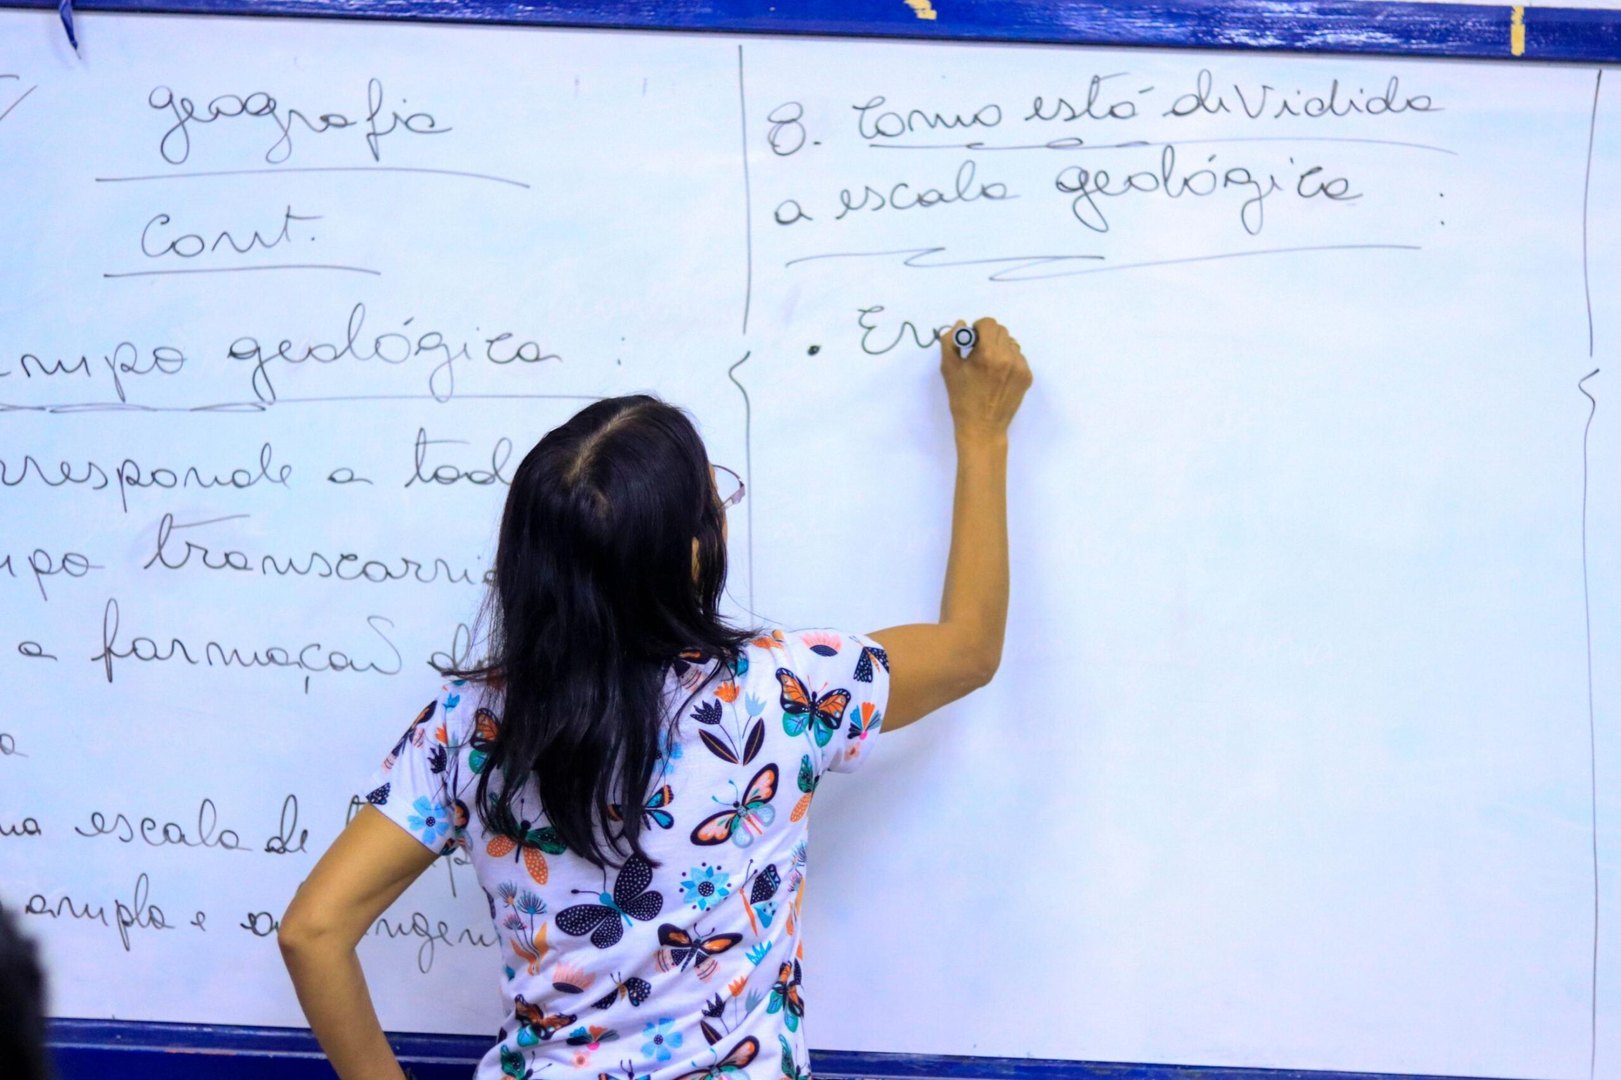 geografia
Cont.
geológica :
rresponde a tod
transcorri
a formação d
a
escala de
ampla e
8. Como está dividida
a escala geológica :
• Era